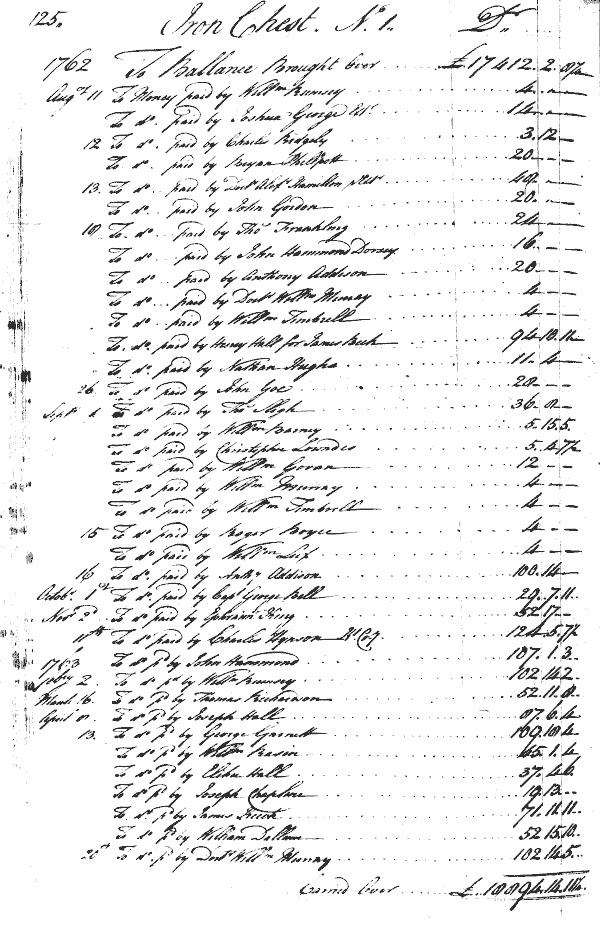 125. Iron Chest. No. 1. Dr.
1762 To Ballance Brought Over £17412.2.8½
Augst 11 To Money paid by Willm Rumsey 4.-.-
To do. paid by Joshua George Esqr. 14.-.-
12 To do. paid by Charles Ridgely 3.12.-
To do. paid by Bryan Philpott 20.-.-
13. To do. paid by Doctr Alexr Hamilton
To do. paid by John Gordon 20.-.-
18 To do. paid by Thos Frankling 24.-.-
To do. paid by John Hammond Dorsey 16.-.-
To do. paid by Anthony Addison 20.-.-
To do. paid by Doctr Willm Murray 4.-.-
To do. paid by Willm Timbrell 4.-.-
To do. paid by Henry Hall for James Beck
To do. paid by Nathan Hughs 11.4
26. To do. paid by John Goe
Septr To do. paid by Thos Sligh 36.8.-
To do. paid by Willm Barney 5.15.5
To do. paid by Christopher Lowndes
To do. paid by Willm Govan 12.-.-
To do. paid by Willm Murray 4.-.-
To do. paid by Willm Timbrell 4.-.-
15 To do. paid by Roger Boyce 4.-.-
To do. paid by Willm 4.-.-
16 To do. paid by Anthy Addison 100.14.-
Octobr. 1st To do. paid by Capt George Bell 29.7.11
Novr 2d To do paid by Ephraim King 52.17.-
11th To do paid by Charles Hynson
1763 To do pd by John Hammond 107.1.3.
2 To do pd by Willm Rumsey 102.14.2
March 16. To do. pd by Thomas Richardson 52.11.8
April 8. To do. pd by Joseph Hall 87.6.4
13. To do pd by George Garnett
To do pd by Willm Rasin
To do. pd by Elihu Hall 37.4.6
To do pd by Joseph Chapline 19.13.-
To do. pd by James 71.11.11
To do. pd by William Dallam
20th To do. pd by Doctr Willm Murray 102.14.5
Carried Over